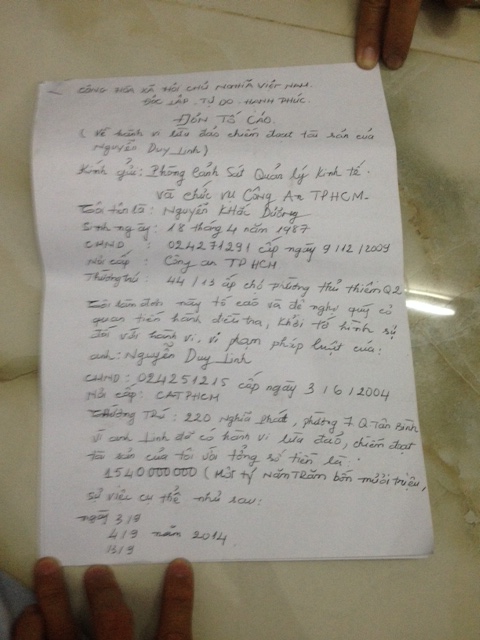 CỘNG HÒA XÃ HỘI CHỦ NGHĨA VIỆT NAM.
ĐỘC LẬP. TỰ DO. HẠNH PHÚC.
ĐƠN TỐ CÁO.
( Về hành vi lừa đảo chiếm đoạt tài sản của
Nguyễn Duy Linh)
Kính gửi: Phòng Cảnh Sát Quản lý Kinh tế
và chức vụ Công An TPHCM-
Tôi tên là: Nguyễn Khắc Dương
Sinh ngày: 18 tháng 4 năm 1987
CMND : 024271291 cấp ngày 9/12/2009
Nơi cấp: Công an TPHCM
Thường trú: 44/13 ấp chợ phường thủ thiêm Q2
Tôi làm đơn này tố cáo và đề nghị quý cơ
quan tiến hành điều tra, khởi tố hình sự
đối với hành vi, vi phạm pháp luật của:
anh: Nguyễn Duy Linh
CMND: 024251215 cấp ngày 3/6/2004
Nơi cấp: CATPHCM
Thường Trú: 220 Nghĩa Phát, phường 7 Q Tân Bình
vì anh Linh đã có hành vi lừa đảo, chiếm đoạt
tài sản của tôi với tổng số tiền là
1540000000 ( Một tỷ Năm Trăm bốn mươi triệu,
sự việc cụ thể như sau:
ngày 3/9
4/9 năm 2014.